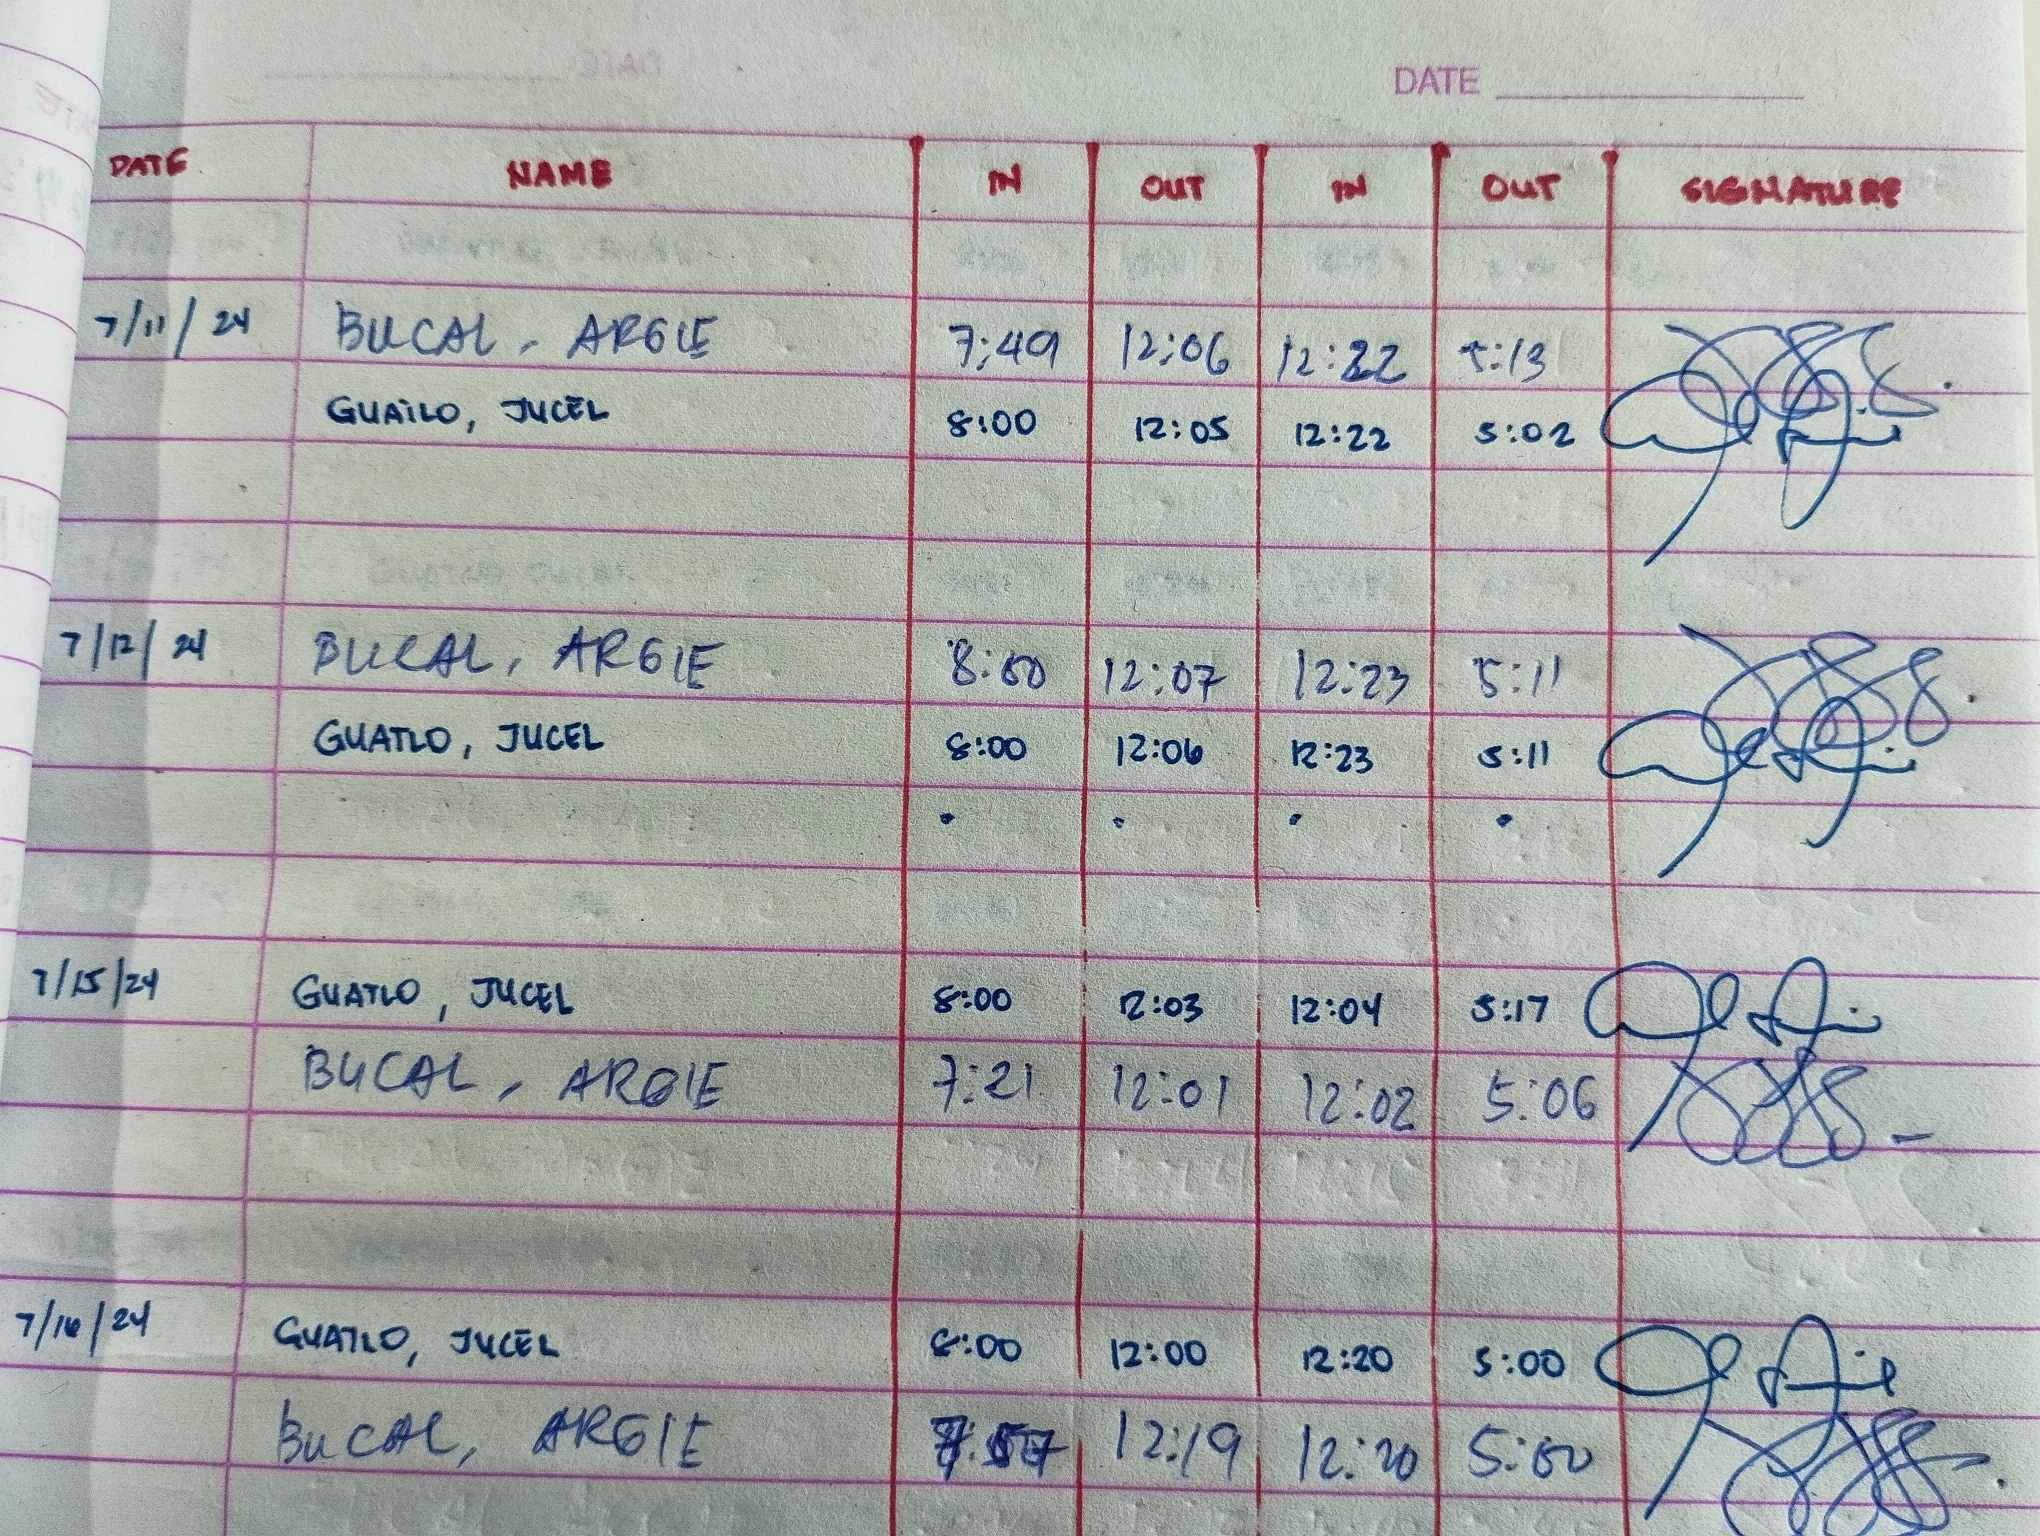 DATE
DATE NAME IN OUT IN OUT SIGNATURE
7/11/24 BUCAL, ARGIE 7:49 12:06 12:22 5:13
GUATLO, JUCEL 8:00 12:05 12:22 5:02
7/12/24 BUCAL, ARGIE 8:00 12:07 12:23 5:11
GUATLO, JUCEL 8:00 12:06 12:23 5:11
7/15/24 GUATLO, JUCEL 8:00 12:03 12:04 5:17
BUCAL, ARGIE 7:21 12:01 12:02 5:06
7/16/24 GUATLO, JUCEL 8:00 12:00 12:20 5:00
BUCAL, ARGIE 7:57 12:19 12:20 5:00